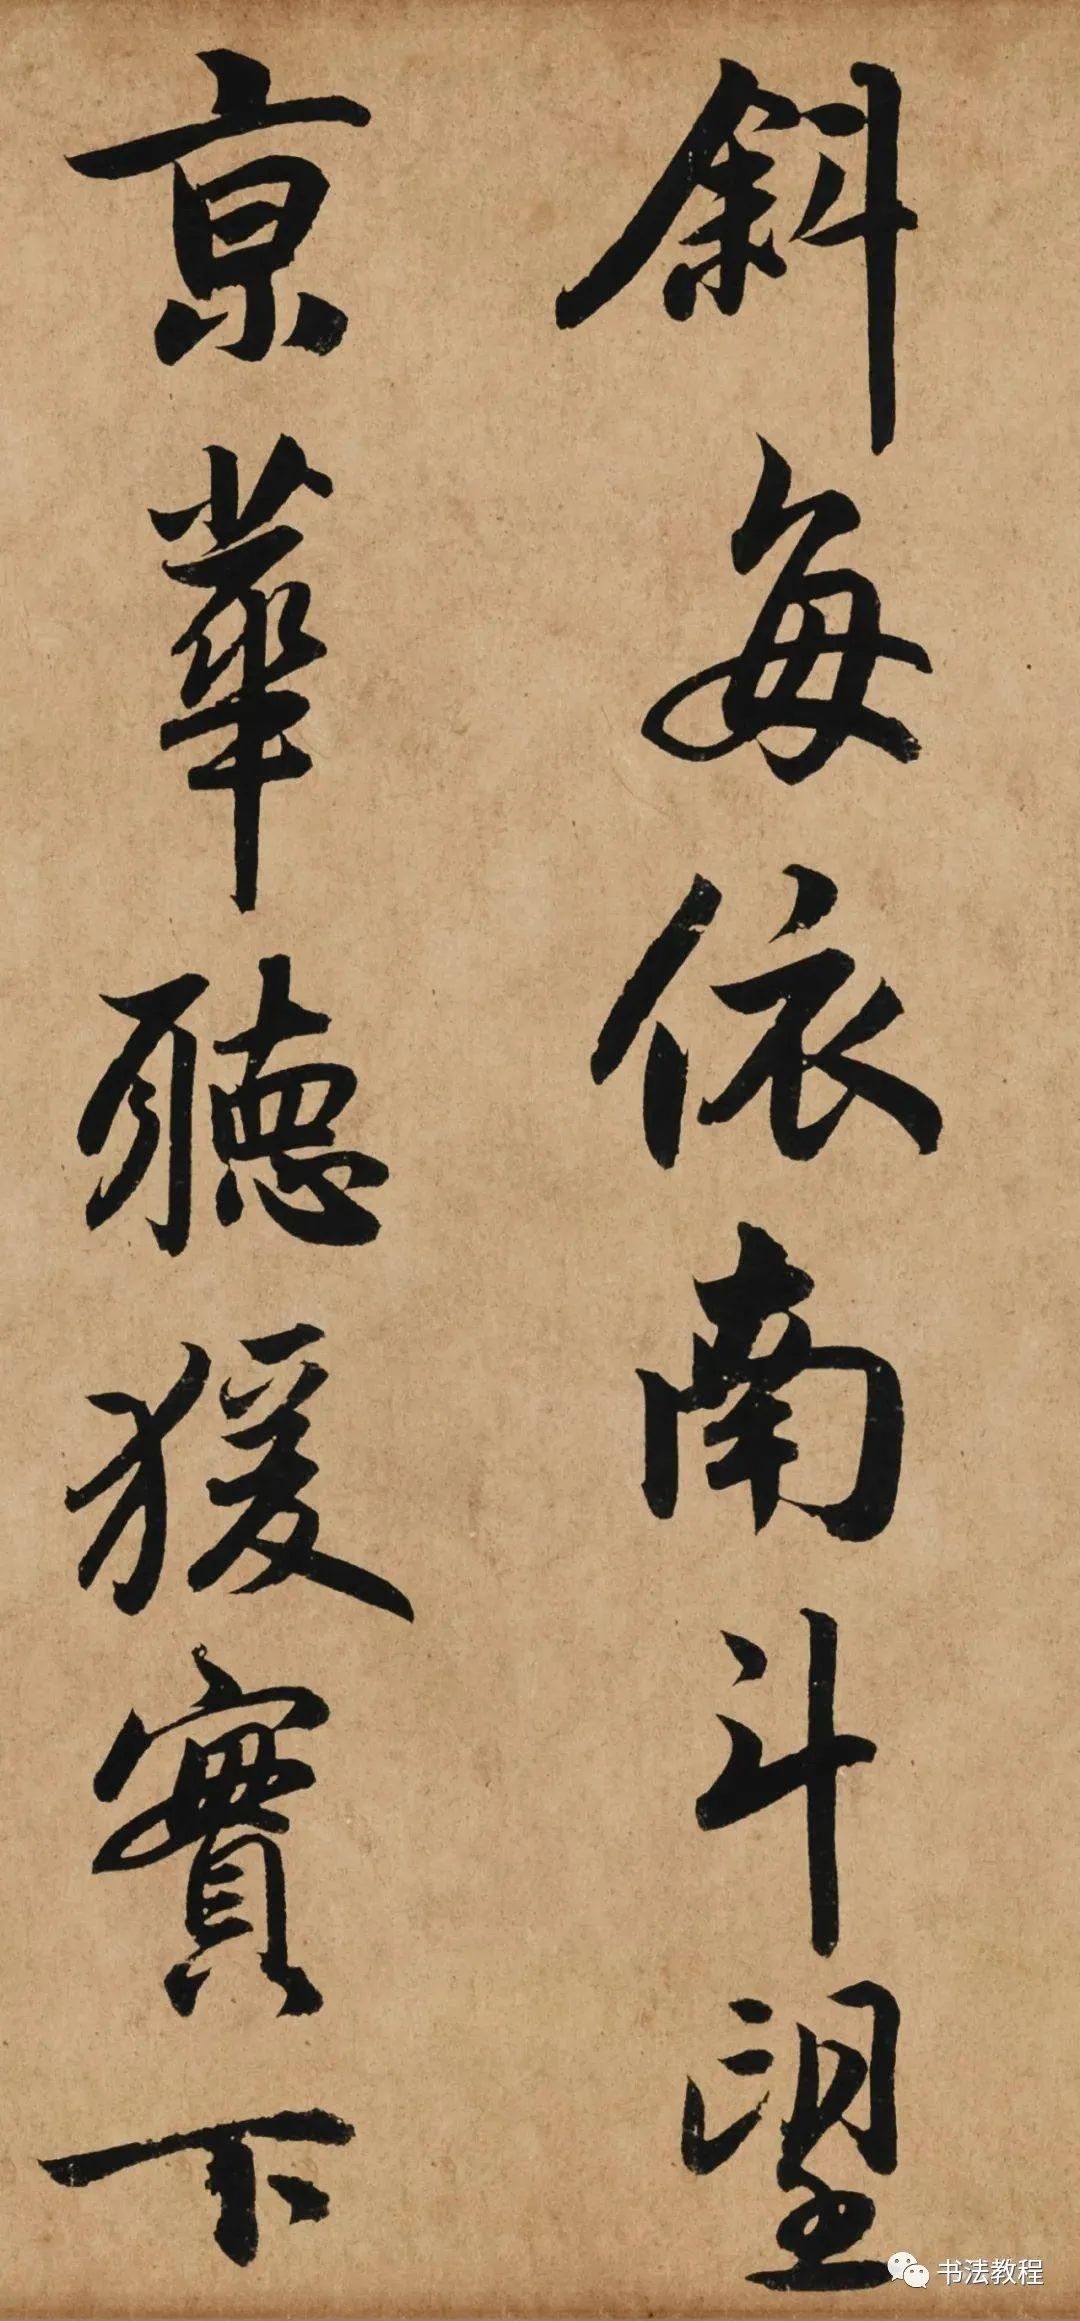 斜每依南斗望
京華聽猨實下
书法教程